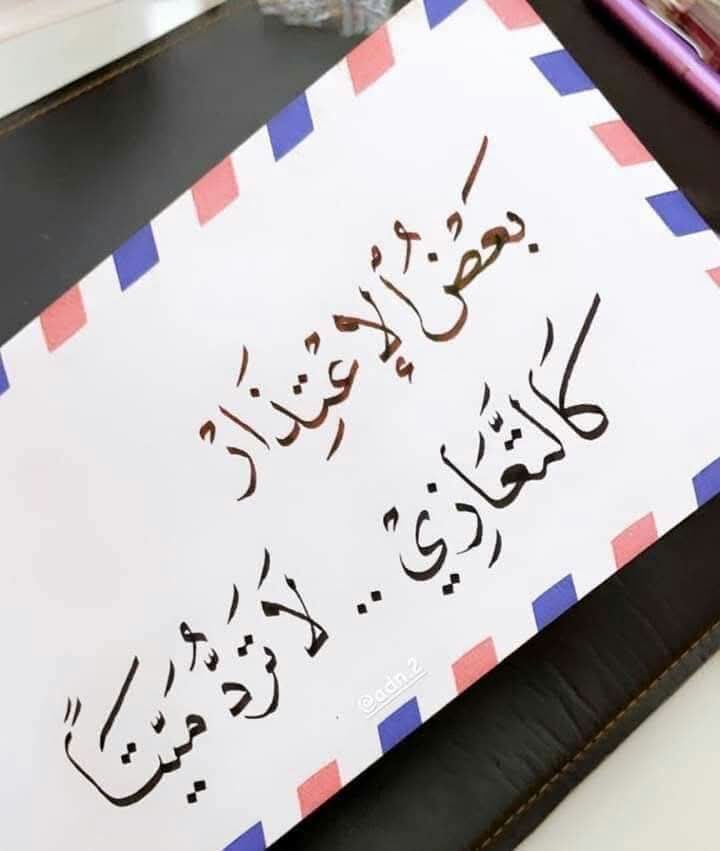 بَعْضُ الْإِعْتِذَارْ
كَالتَّعَازِيْ .. لَا تَرُدُّ مَيِّتًا
@adn.2